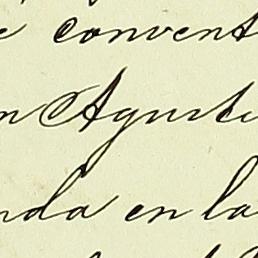 e convent
n Agusti
nda en la